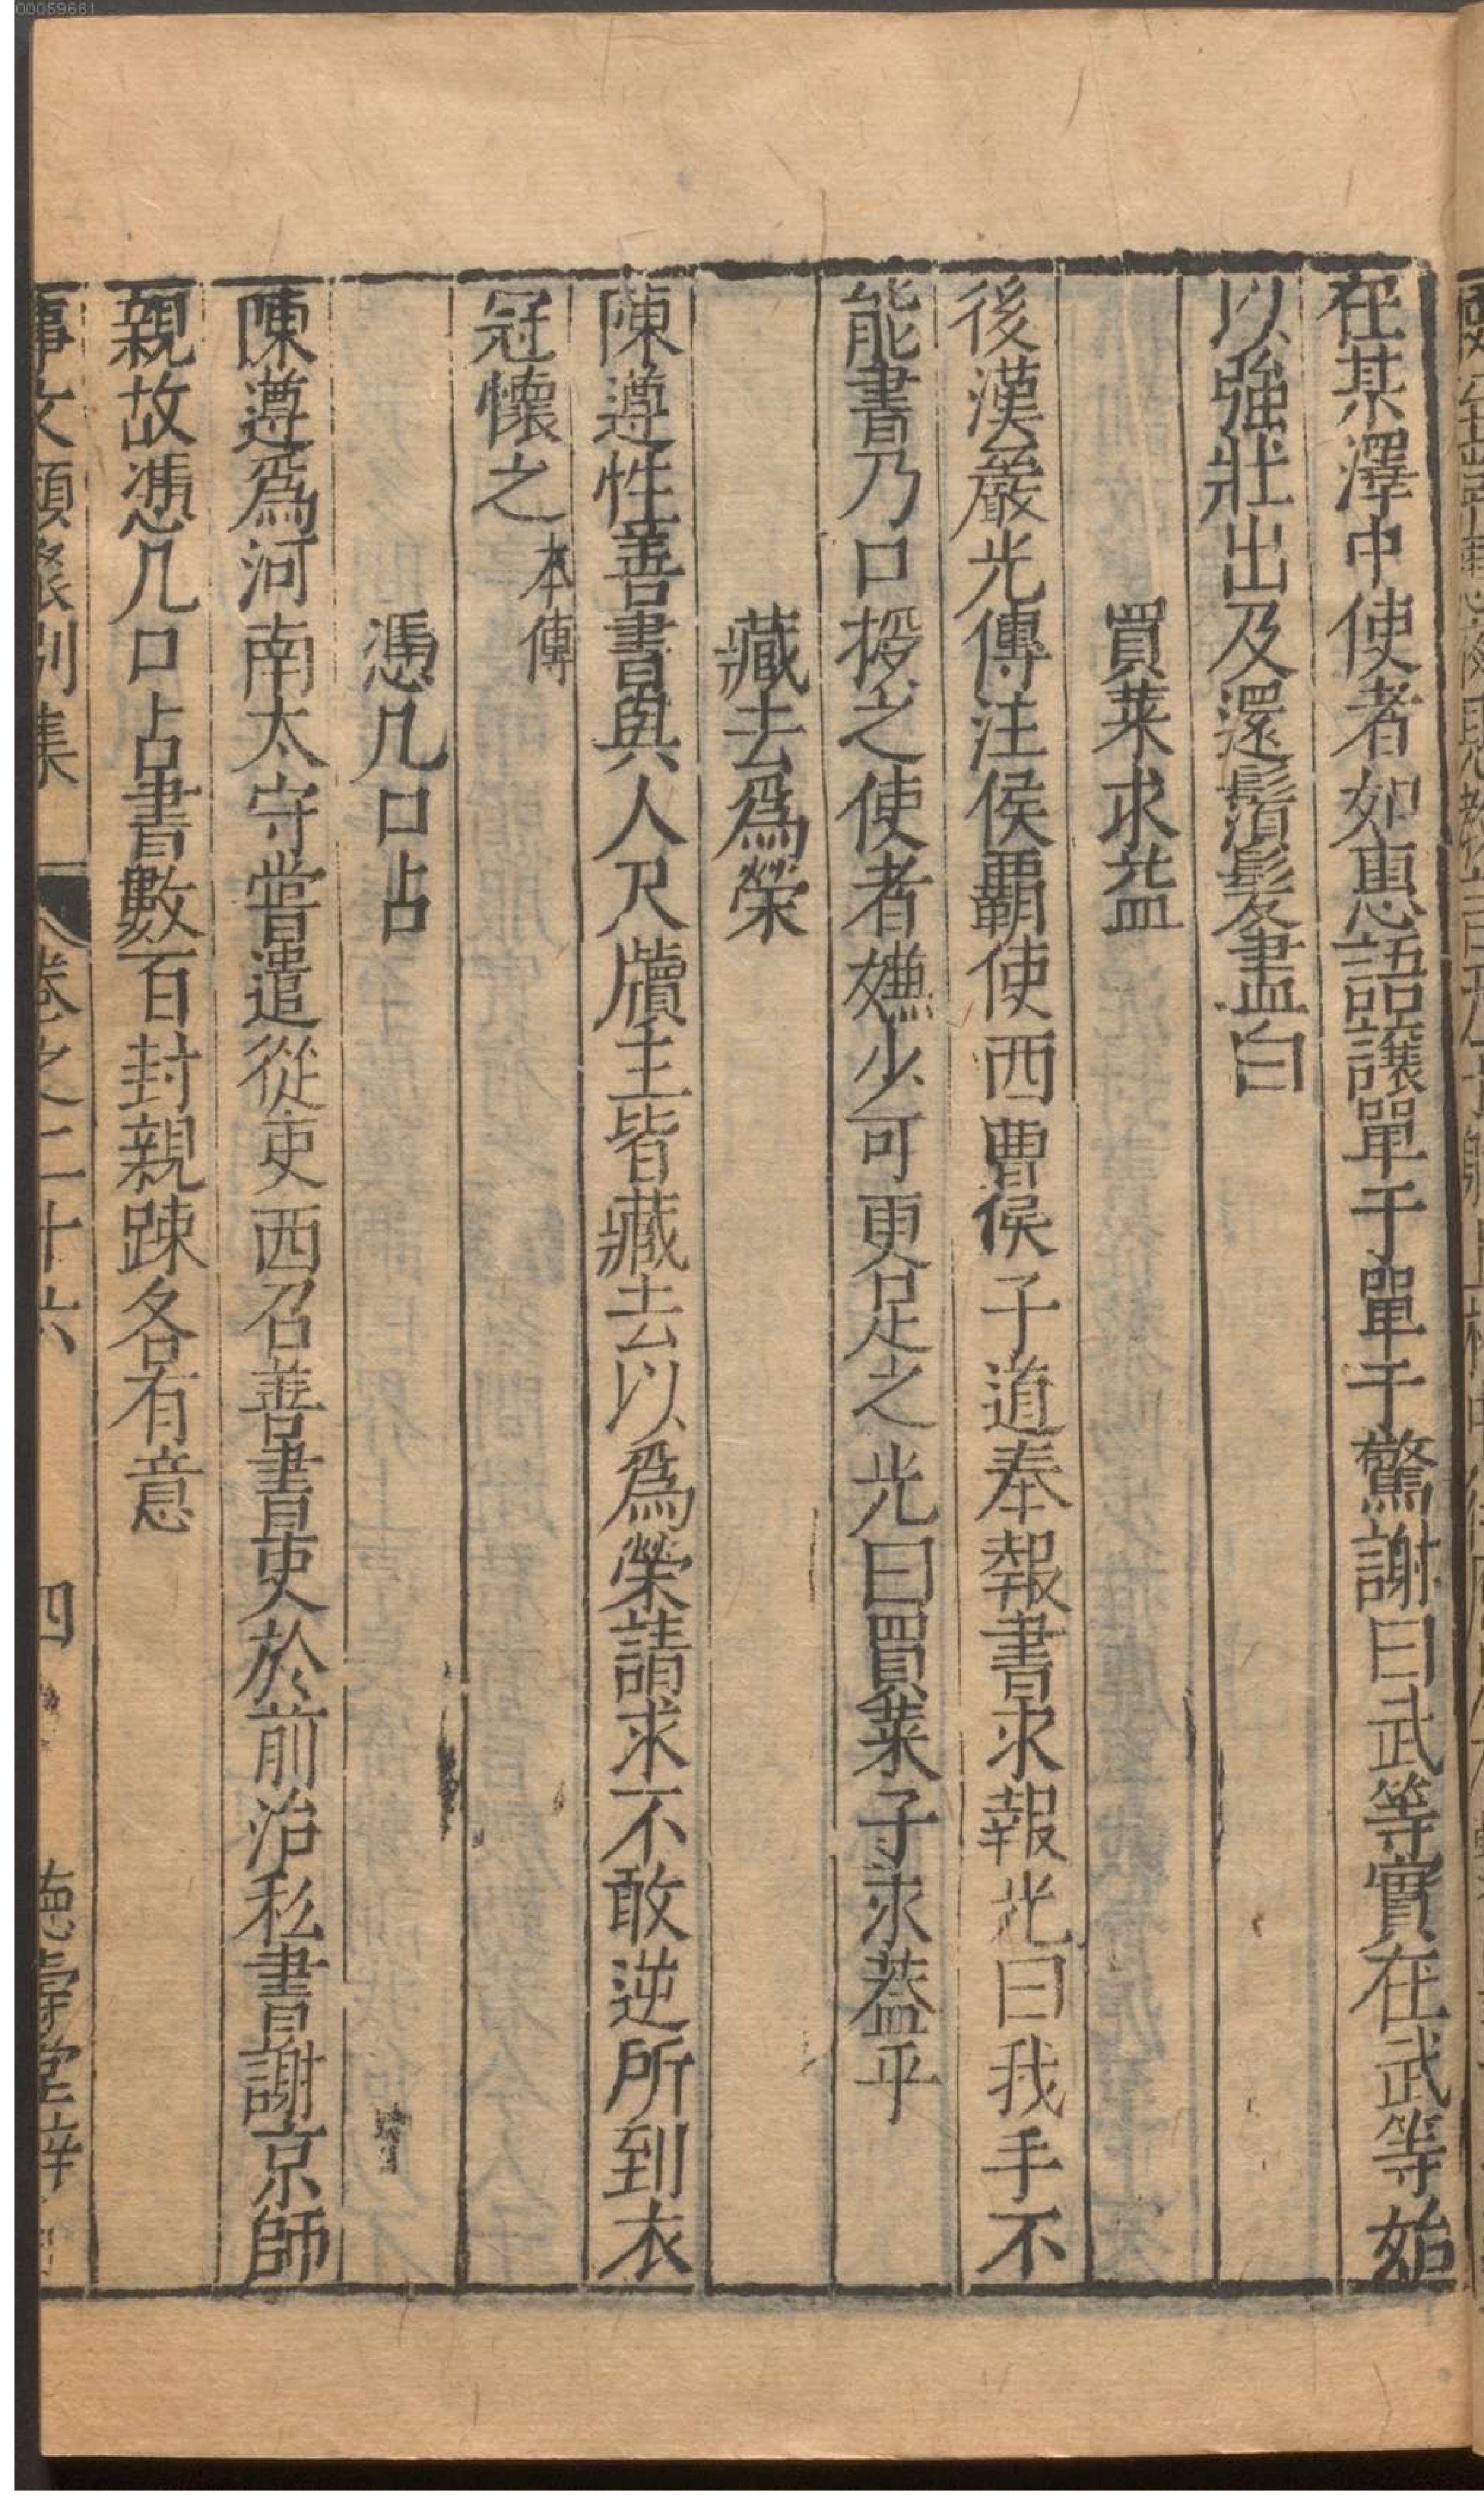 00059661
在某澤中使者如惠語讓單于單于驚謝曰武等實在武等始
以強壯出及還鬚髮盡白
買菜求益
後漢嚴光傳注侯霸使西曹侯子道奉報書求報光曰我手不
能書乃口授之使者嫌少可更足之光曰買菜子求益乎
藏去爲榮
陳遵性善書與人尺牘主皆藏去以爲榮請求不敢逆所到衣
冠懷之本傳
憑几口占
陳遵爲河南太守嘗遣從吏西召善書吏於前治私書謝京師
親故憑几口占書數百封親踈各有意
事文類聚別集 卷之二十六 四 德壽堂梓